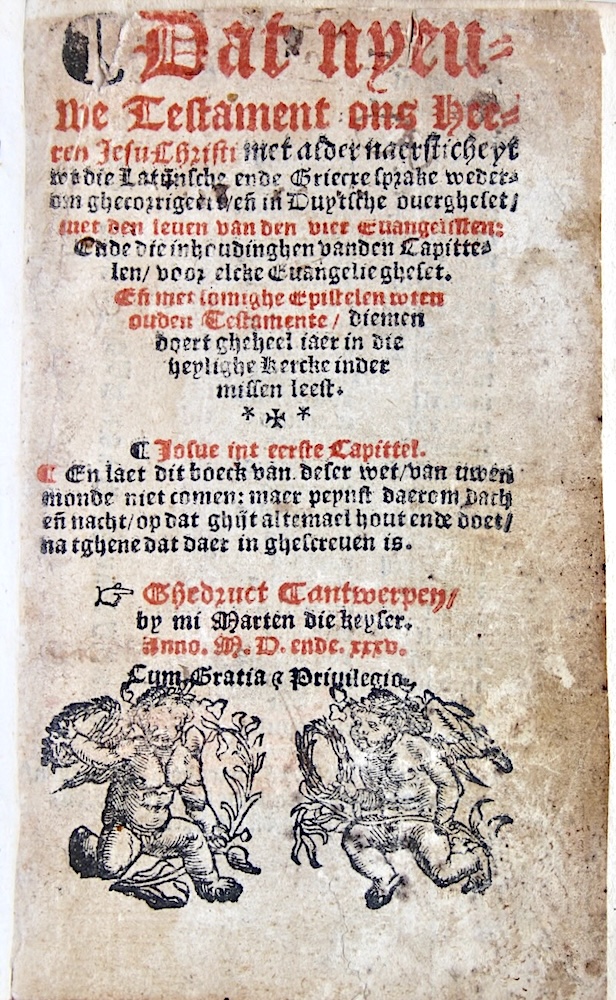 ¶ Dat nyeu⸗
we Testament ons Hee⸗
ren Jesu Christi met alder naersticheyt
wt die Latijnsche ende Griecxe sprake weder⸗
om ghecorrigeert/eñ in Duytsche ouergheset/
met den leuen van den vier Euangelisten:
Ende die inhoudinghen vanden Capitte⸗
len/ voor elcke Euangelie gheset.
Eñ met somighe Epistelen wten
ouden Testamente/ diemen
doert gheheel iaer in die
heylighe Kercke inder
missen leest.
* ✠ *
¶ Josue int eerste Capittel.
¶ En laet dit boeck van deser wet/van uwen
monde niet comen: maer peynst daerom dach
eñ nacht/op dat ghijt altemael hout ende doet/
na tghene dat daer in ghescreuen is.
☞ Ghedruct Tantwerpen/
by mi Marten die keyser.
Anno. M. D. ende. xxxv.
Cum Gratia ⁊ Priuilegio.